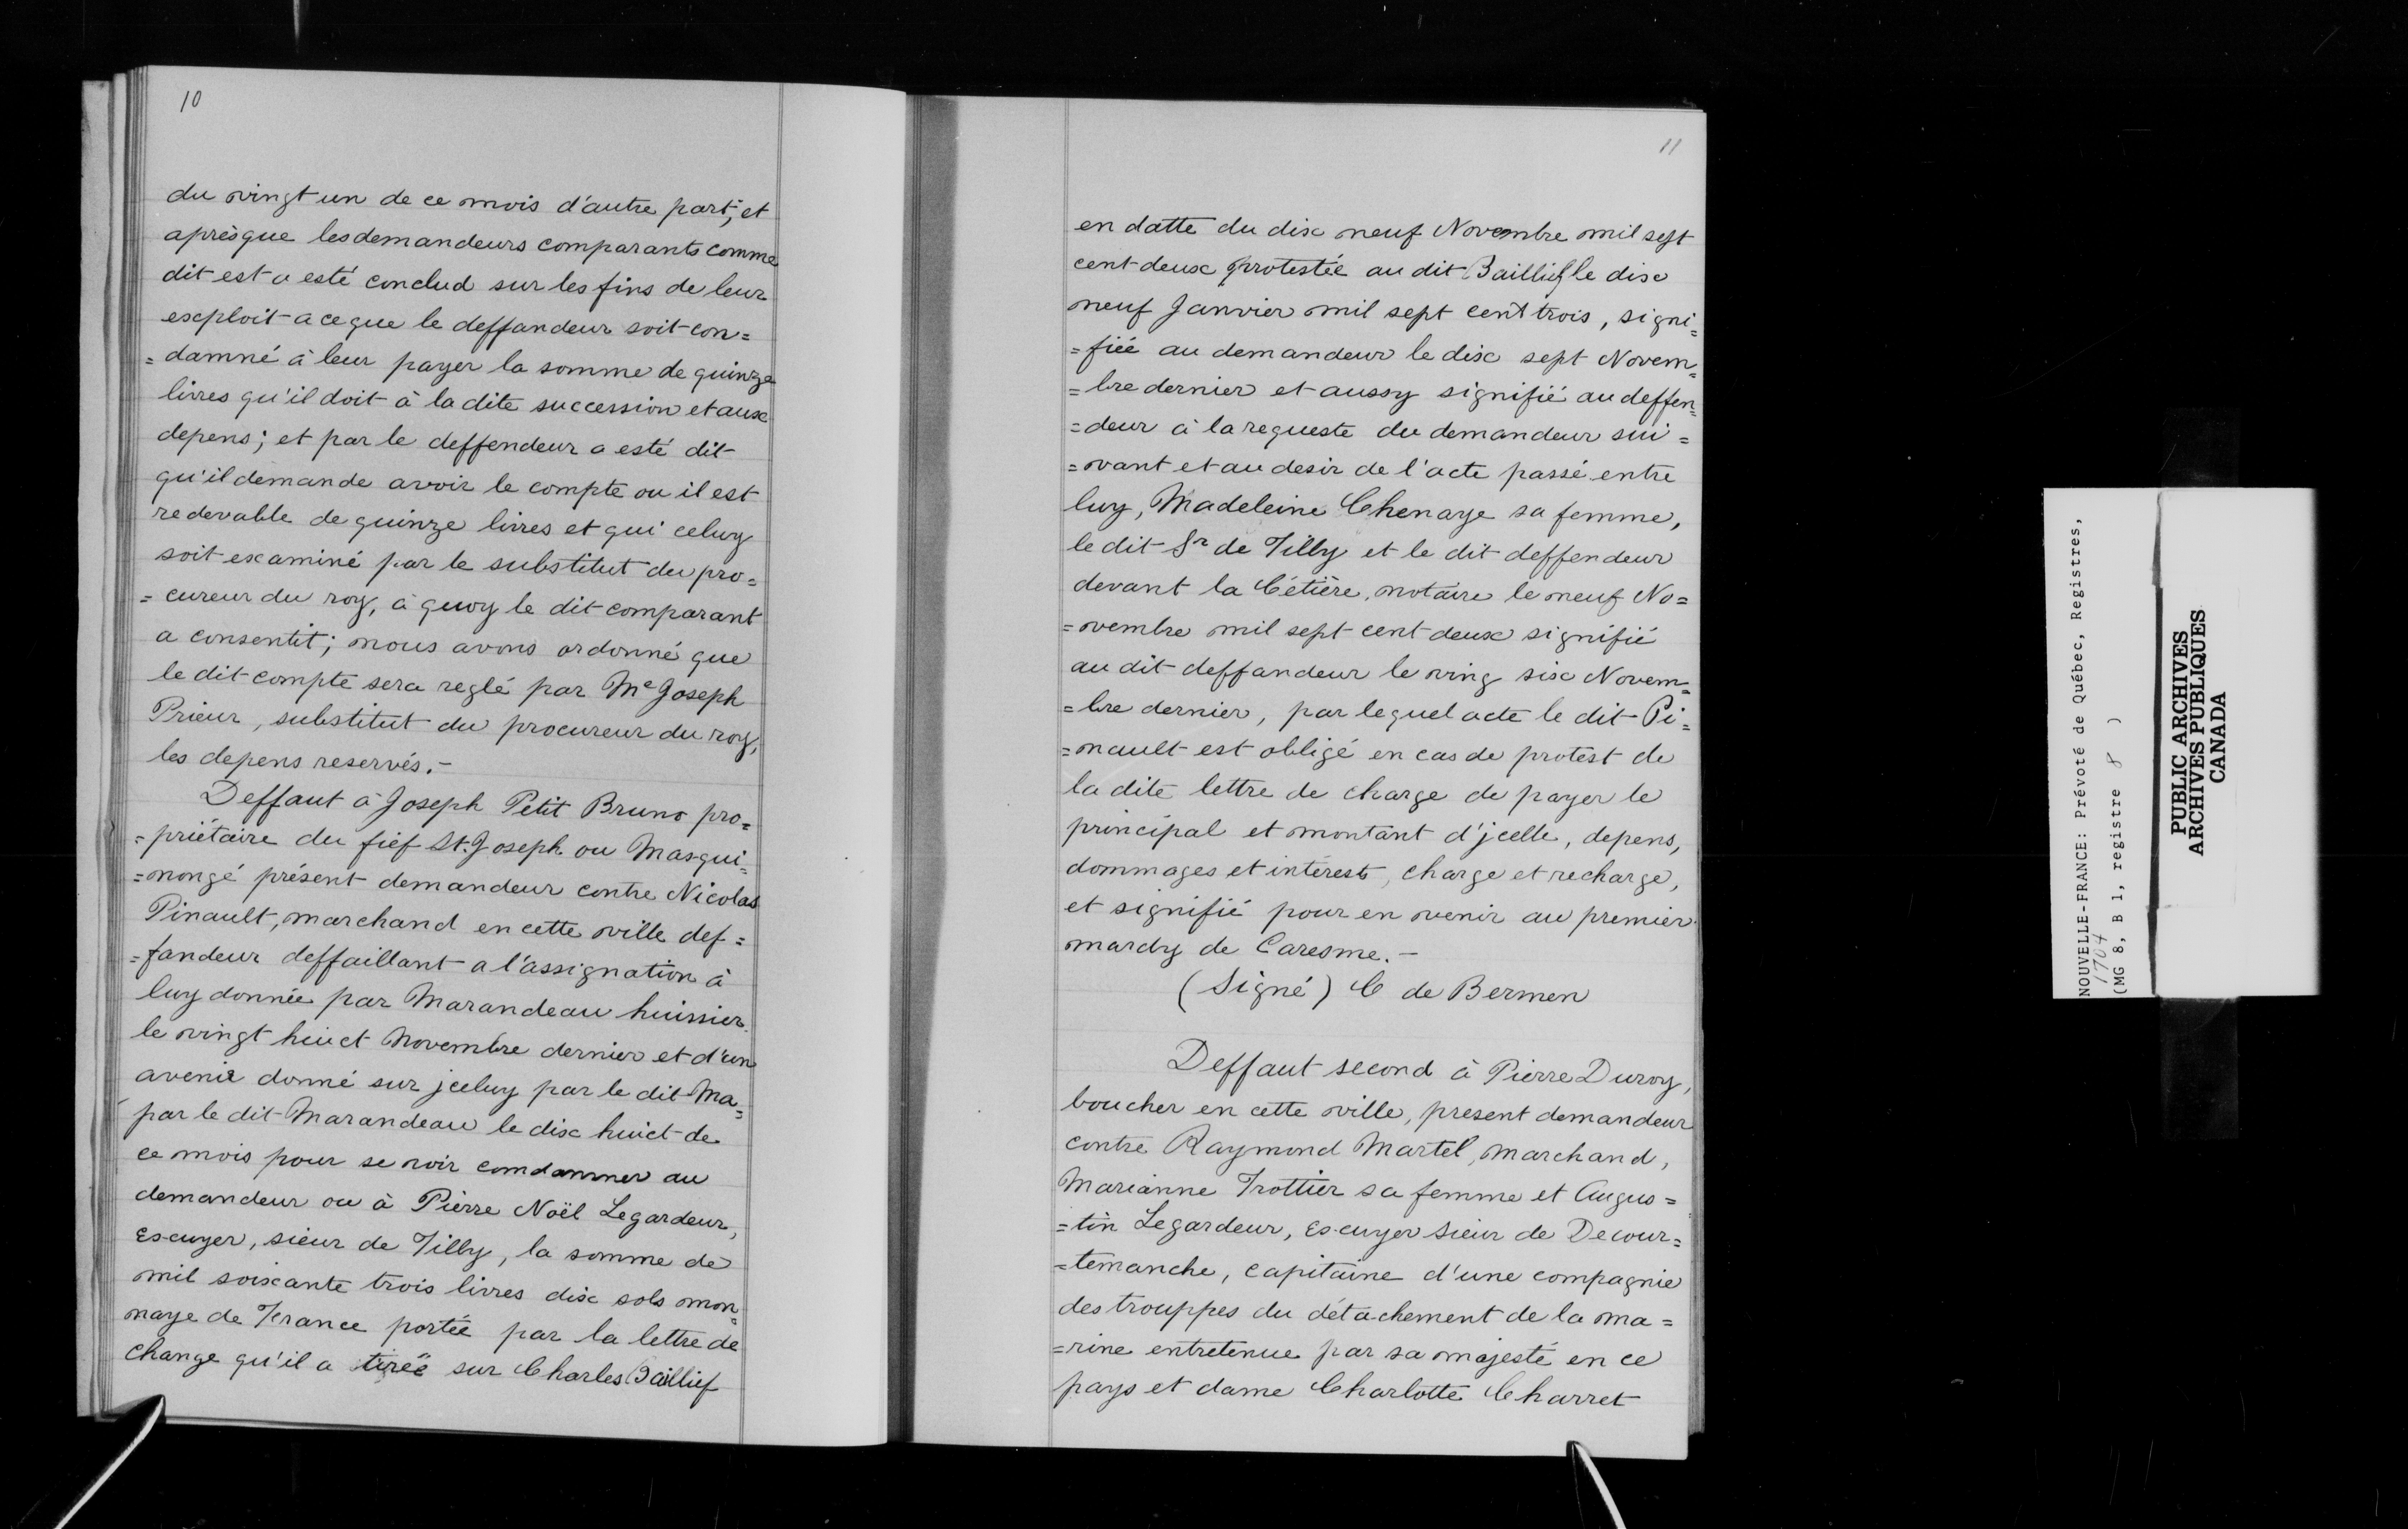 10
du vingt un de ce mois d'autre part; et
aprèsque les demandeurs comparants comme
dit est a esté conclud sur les fins de leur
exploit a ceque le deffandeur soit con=
=damné à leur payer la somme de quinze
livres qu'il doit à la dite succession et aux
depens; et par le deffendeur a esté dit
qu'il demande avoir le compte ou il est
redevable de quinze livres et qui celuy
soit examiné par le substitut du pro=
=cureur du roy, à quoy le dit comparant
a consentit; nous avons ordonné que
le dit compte sera reglé par Me Joseph
Prieur, substitut du procureur du roy,
les depens reservés.-
Deffaut à Joseph Petit Bruno pro=
=priétaire du fief St. Joseph ou Masqui=
=nongé présent demandeur contre Nicolas
Pinault, marchand en cette ville def=
=fandeur deffaillant a l'assignation à
luy donnée par Marandeau huissier
le vingt huict Novembre dernier et d'un
avenir donné sur jceluy par le dit Ma=
par le dit Marandeau le dix huict de
ce mois pour se voir comdamner au
demandeur ou à Pierre Noël Legardeur,
Escuyer, sieur de Tilly, la somme de
mil soixante trois livres dix sols mon=
naye de France portée par la lettre de
change qu'il a tirée sur Charles Baillief
11
en datte du dix neuf Novembre mil sept
cent deux protestée au dit Baillief le dix
neuf Janvier mil sept cent trois, signi=
=fiée au demandeur le dix sept Novem=
=bre dernier et aussy signifié au deffen=
=deur à la requeste du demandeur sui=
=vant et au desir de l'acte passé entre
luy, Madeleine Chenaye sa femme,
le dit Sr de Tilly et le dit deffendeur
devant la Cétière, notaire le neuf No=
=vembre mil sept cent deux signifié
au dit deffandeur le ving six Novem=
=bre dernier, par lequel acte le dit Pi=
=nault est obligé en cas de protest de
la dite lettre de charge de payer le
principal et montant d'jcelle, depens,
dommages et intérests, charge et recharge,
et signifié pour en venir au premier
mardy de Caresme.-
(Signé) C de Bermen
Deffaut second à Pierre Duroy,
boucher en cette ville, present demandeur
contre Raymond Martel, marchand,
Marianne Trottier sa femme et Augus=
=tin Legardeur, Escuyer sieur de Decour=
=temanche, capitaine d'une compagnie
des trouppes du détachement de la ma=
=rine entretenue par sa majesté en ce
pays et dame Charlotte Charret
NOUVELLE-FRANCE: Prévoté de Québec, Registres,
1704
(MG 8, B 1, registre 8 )
PUBLIC ARCHIVES
ARCHIVES PUBLIQUES
CANADA